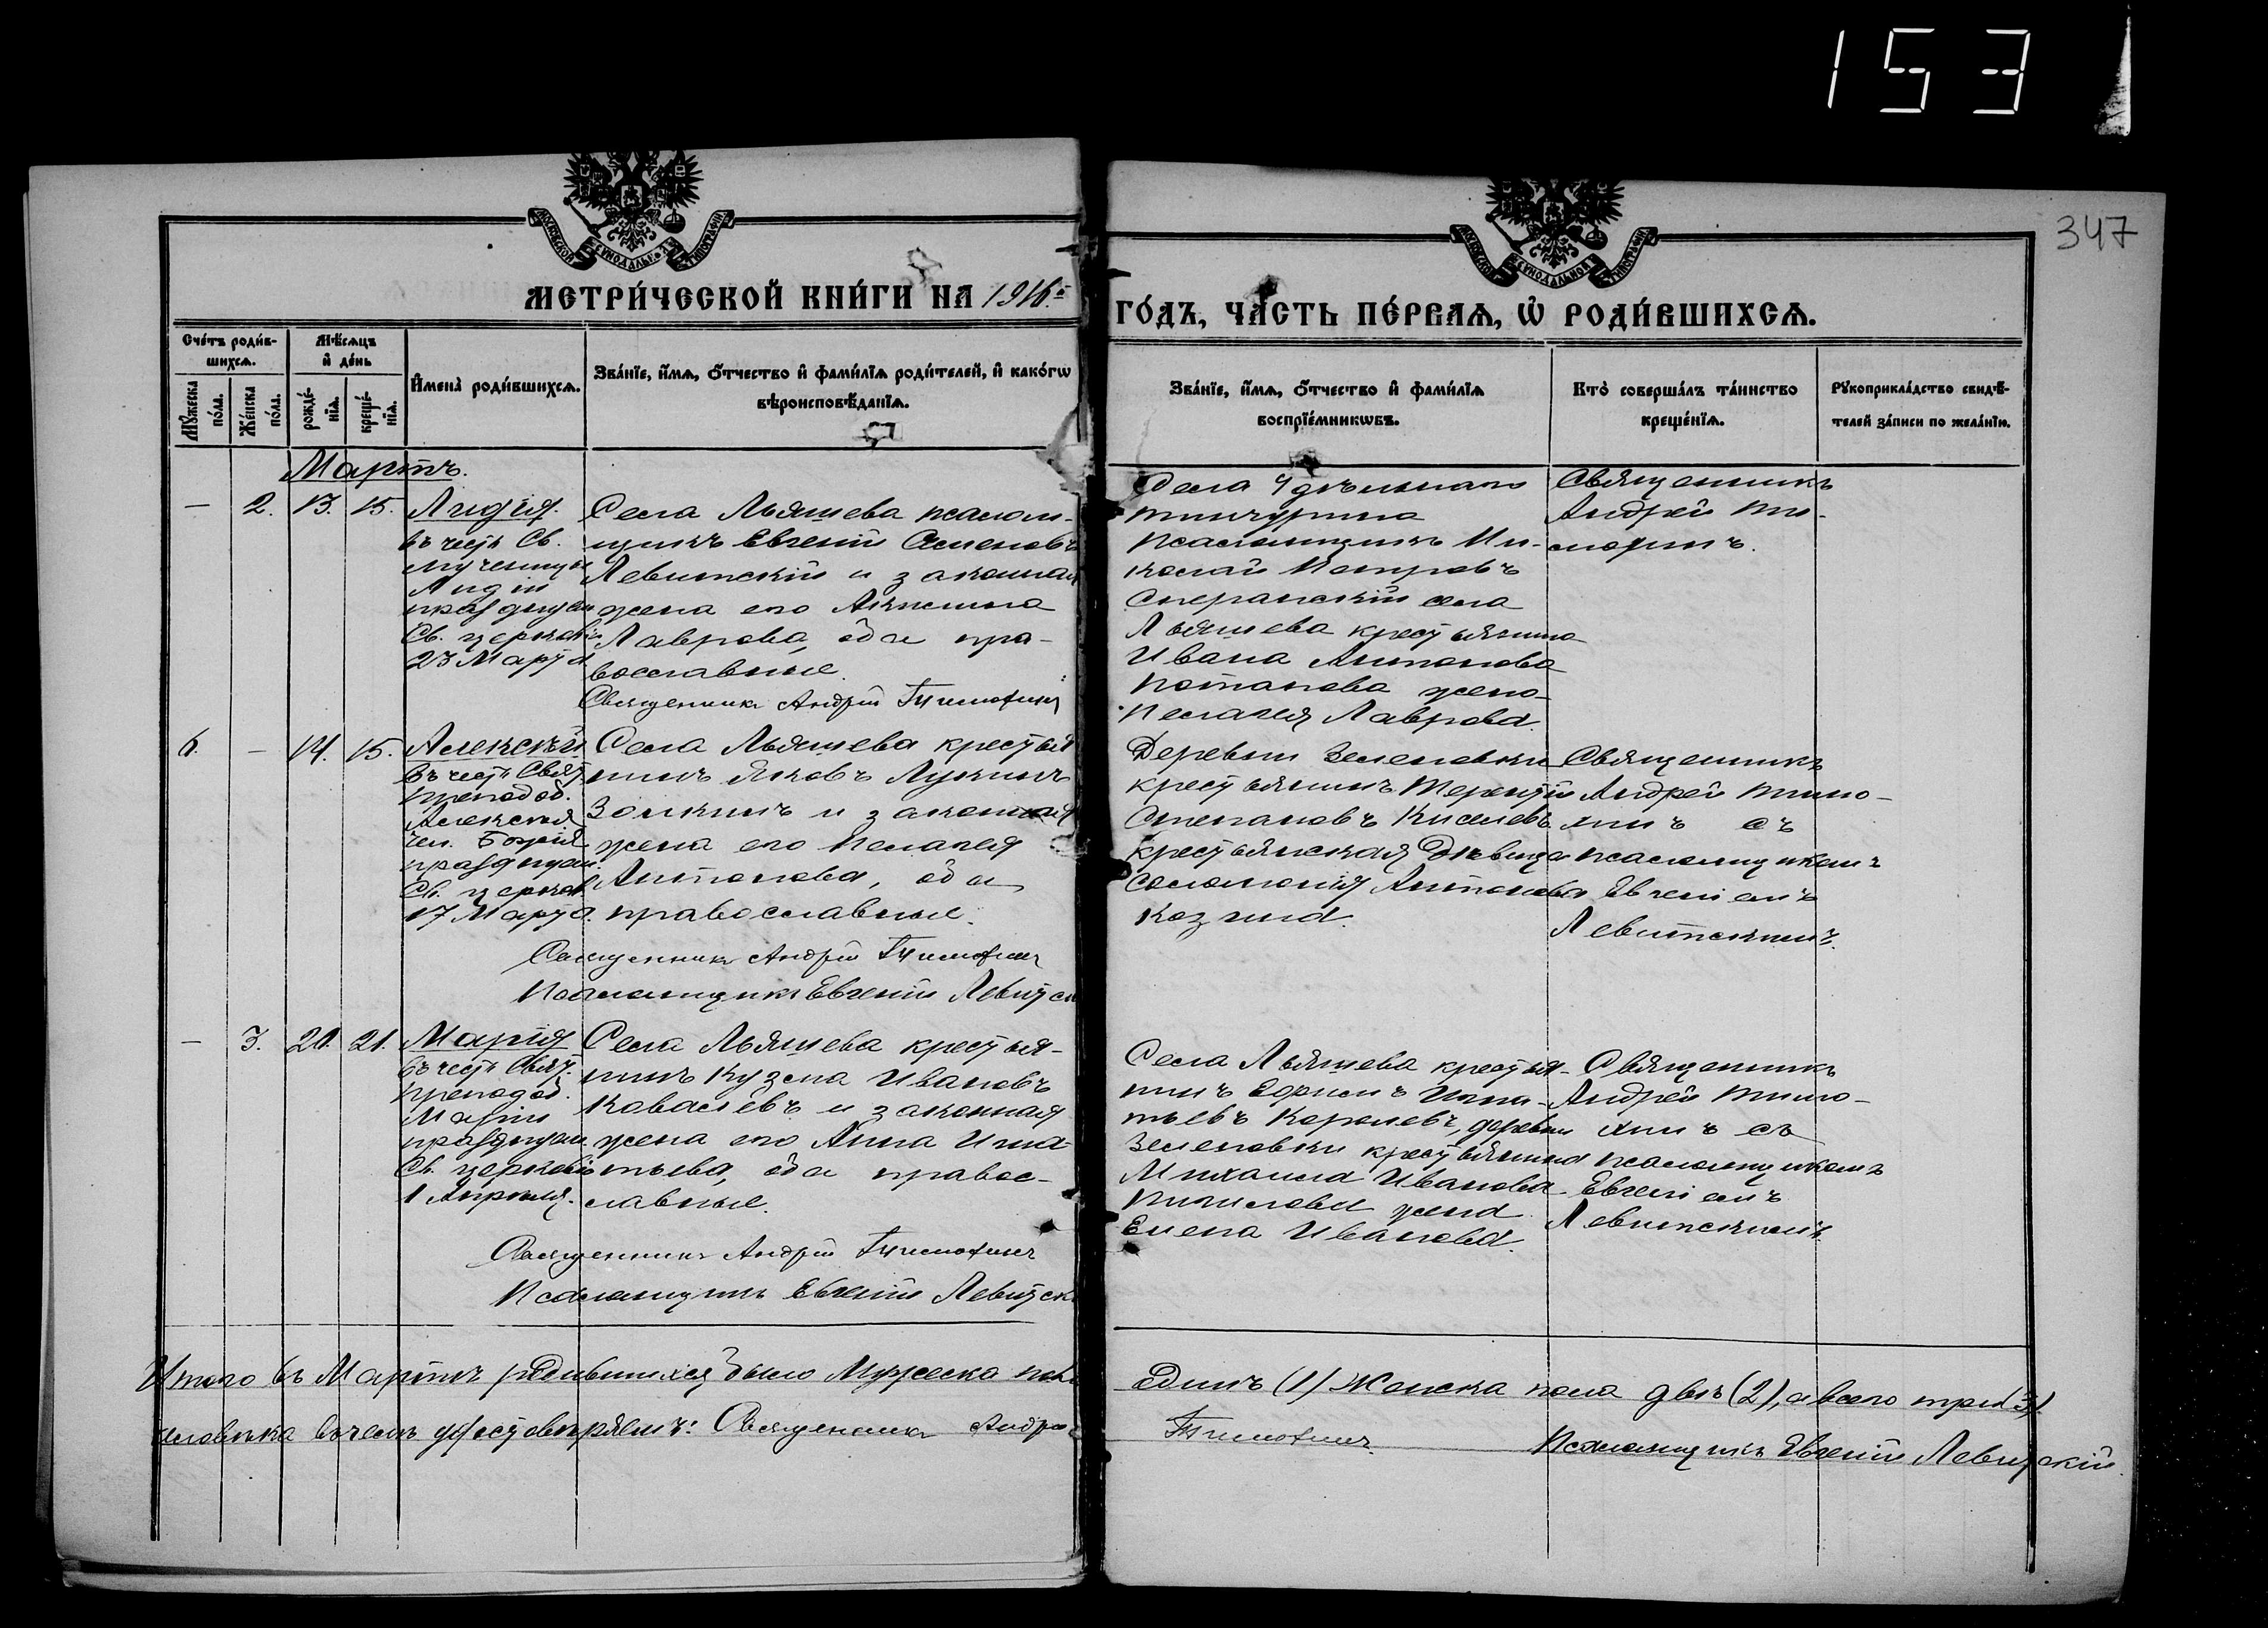 153
347
МЕТРИ́ЧЕСКОЙ КНИ́ГИ НА 1916.й
ГО́ДЪ, ЧА́СТЬ ПЕ́РВАѦ, Ѡ҆ РОДИ́ВШИХСѦ.
Сче́тъ роди́в-
шихсѧ.
Мѣ́сѧцъ
и҆ де́нь
Мꙋ́жеска
по́ла.
Же́нска
по́ла.
рожде́-
нїѧ.
креще́-
нїѧ.
И҆мена̀ роди́вшихсѧ.
Зва́нїе, и҆́мѧ, ѻ҆́тчество и҆ фами́лїѧ роди́телей, и҆ како́гѡ
вѣроисповѣ́данїѧ.
Зва́нїе, и҆́мѧ, ѻ҆́тчество и҆ фами́лїѧ
воспрїе́мникѡвъ.
Кто̀ соверша́лъ та́инство
креще́нїѧ.
Рꙋкоприкла́дство свидѣ́-
телей за́писи по жела́нїю.
Мартъ.
— 2. 13. 15. Лидія.
въ честь Св.
мученицы
Лидіи
празднуем.
Св. церковію
23 Марта
Села Льяшева псалом-
щикъ Евгений Семеновъ
Левитскій и законная
жена его Аксинья
Лаврова, оба пра-
вославные.
Священникъ Андрей Тимофинъ
Села
псаломщикъ Ни-
колай Петровъ
Сперанскій села
Льяшева крестьянина
Ивана Антонова
Потапова жена
Пелагея Лаврова.
Священникъ
Андрей Ти-
мофинъ.
6. — 14. 15. Алексѣй
въ честь Свят.
преподоб.
Алексія
чел. Божія
празднуем.
Св. церков.
17 Марта.
Села Льяшева крестья
нинъ Яковъ Лукинъ
Золкинъ и законная
жена его Пелагея
Антонова, оба
православные.
Священникъ Андрей Тимофинъ
Псаломщикъ Евгеній Левитск
Деревни Зеленовки
крестьянинъ Терентій
Степановъ Киселевъ
крестьянская дѣвица
Соломонія Антонова
Козина.
Священникъ
Андрей Тимо-
финъ съ
псаломщикомъ
Евгеніемъ
Левитскимъ.
— 3. 20. 21. Марія
въ честь Свят.
преподоб.
Маріи
празднуем.
Св. церковію
1 Апрѣля.
Села Льяшева крестья-
нинъ Кузема Ивановъ
Ковалевъ и законная
жена его Анна Игна-
тьева, оба правос-
лавные.
Священникъ Андрей Тимофинъ
Псаломщикъ Евгеній Левитск
Села Льяшева крестья-
нинъ Ефимъ Игна-
тьевъ Королевъ, деревни
Зеленовки крестьянина
Михаила Иванова
жена
Елена Иванова.
Священникъ
Андрей Тимо-
финъ съ
псаломщикомъ
Евгеніемъ
Левитскимъ.
Итого въ Мартѣ родившихся было Мужеска пола
Единъ (1) Женска пола двѣ (2), а всего три (3)
человѣка въ чемъ удостовѣряемъ: Священникъ Андрей
Тимофинъ. Псаломщикъ Евгеній Левитскій.